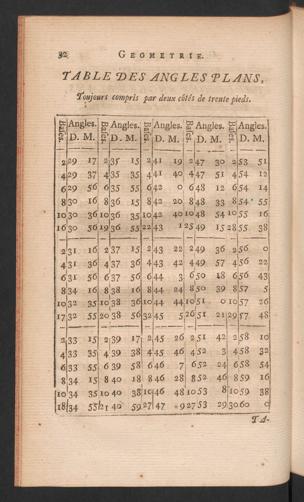 32 GEOMETRIE.
TABLE DES ANGLES PLANS,
Toujours compris par deux côtés de trente pieds.
Bases. Angles. Bases. Angles. Bases. Angles. Bases. Angles. Bases. Angles.
D. M. D. M. D. M. D. M. D. M.
2 29 17 2 35 15 2 41 19 2 47 30 2 53 51
4 29 37 4 35 35 4 41 40 4 47 51 4 54 12
6 29 56 6 35 55 6 42 0 6 48 12 6 54 14
8 30 16 8 36 15 8 42 20 8 48 33 8 54 55
10 30 36 10 36 35 10 42 40 10 48 54 10 55 16
16 30 56 19 36 55 22 43 1 25 49 15 28 55 38
2 31 16 2 37 15 2 43 22 2 49 36 2 56 0
4 31 36 4 37 36 4 43 42 4 49 57 4 56 22
6 31 56 6 37 56 6 44 3 6 50 18 6 56 43
8 34 16 8 38 16 8 44 24 8 50 39 8 57 5
10 32 35 10 38 36 10 44 44 10 51 0 10 57 26
17 32 55 20 38 56 32 45 5 26 51 21 29 57 48
2 33 15 2 39 17 2 45 26 2 51 42 2 58 10
4 33 35 4 39 38 4 45 46 4 52 3 4 58 32
6 33 55 6 39 58 6 46 7 6 52 24 6 58 54
8 34 15 8 40 18 8 46 28 8 52 46 8 59 16
10 34 35 10 40 38 10 46 48 10 53 8 10 59 38
18 34 55 21 40 59 27 47 9 27 53 29 30 60 0
TA-